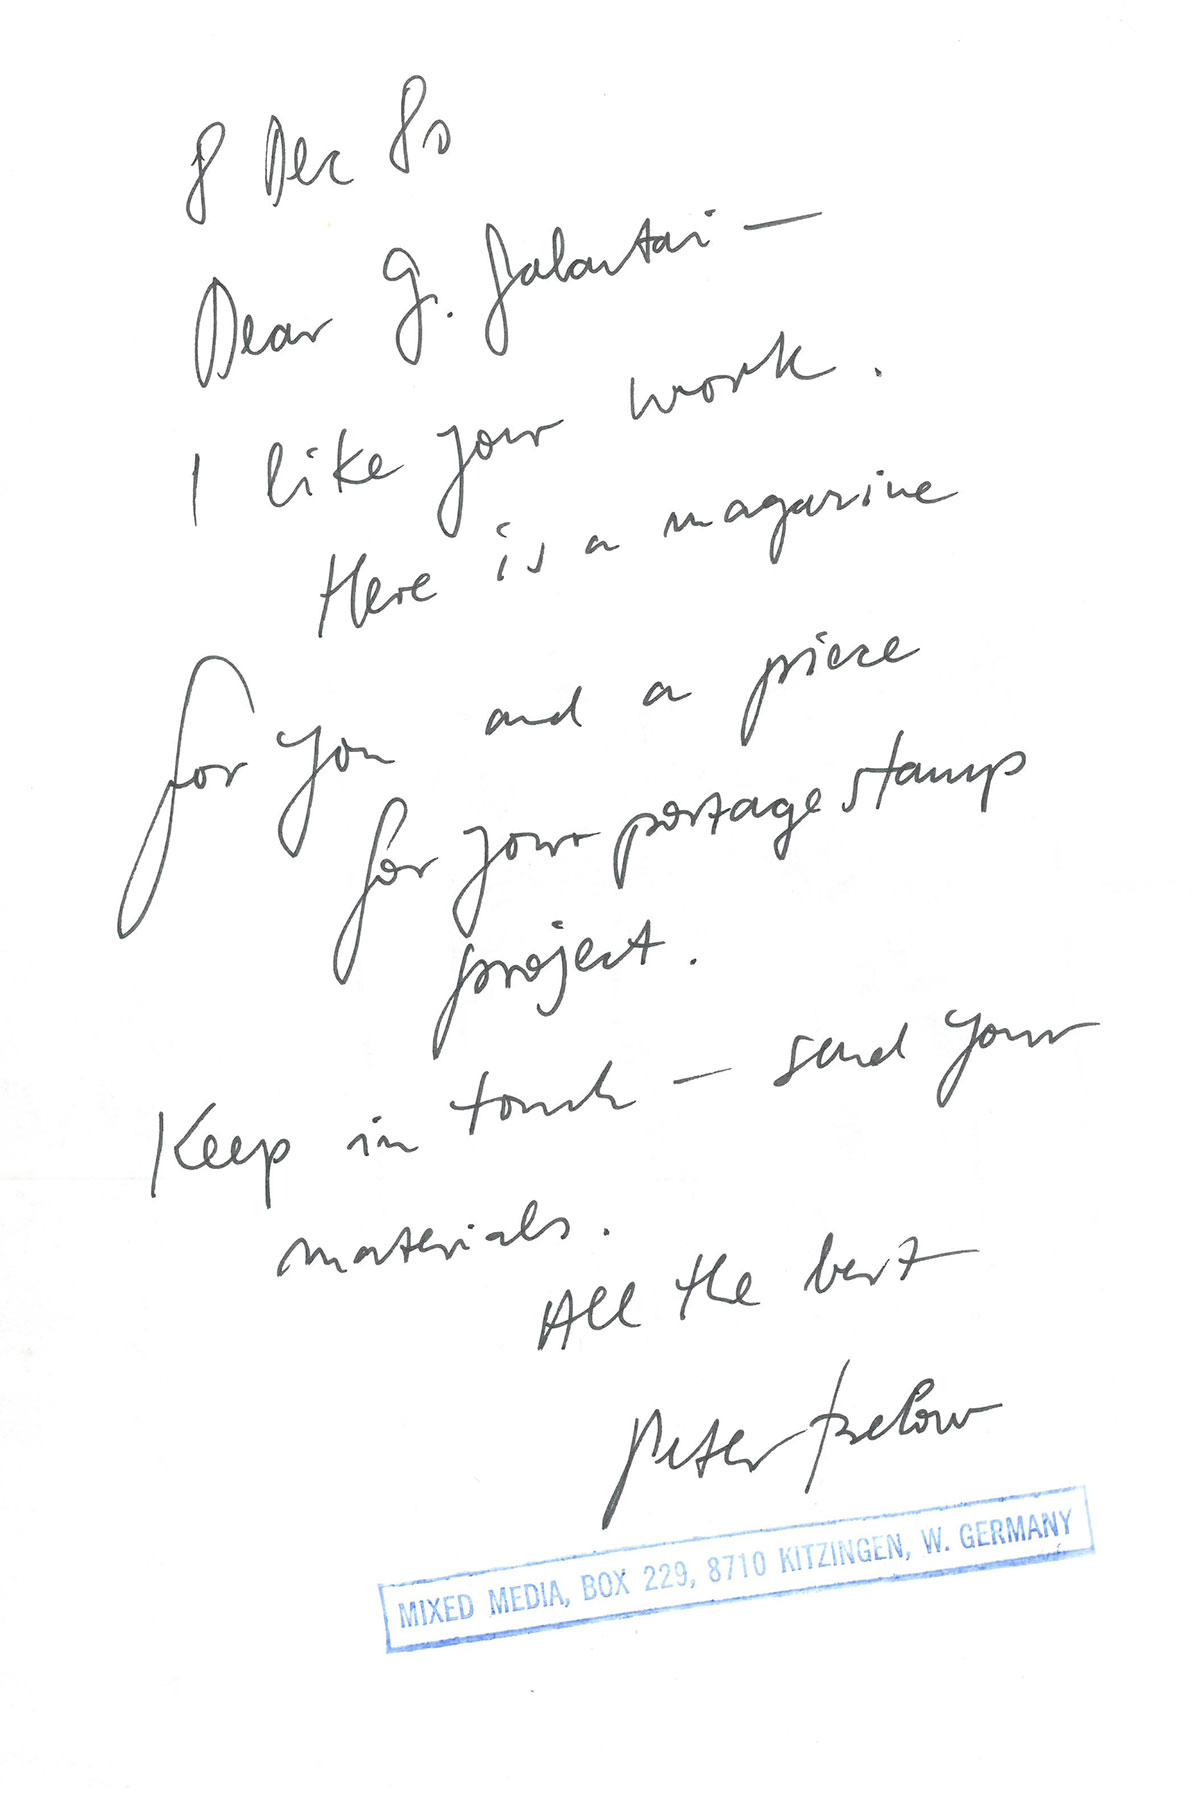 8 Dec 80
Dear G. Galantai —
I like your work.
Here is a magazine
for you and a piece
for your postage stamp
project.
Keep in touch — send your
materials.
All the best
Peter Below
MIXED MEDIA, BOX 229, 8710 KITZINGEN, W. GERMANY